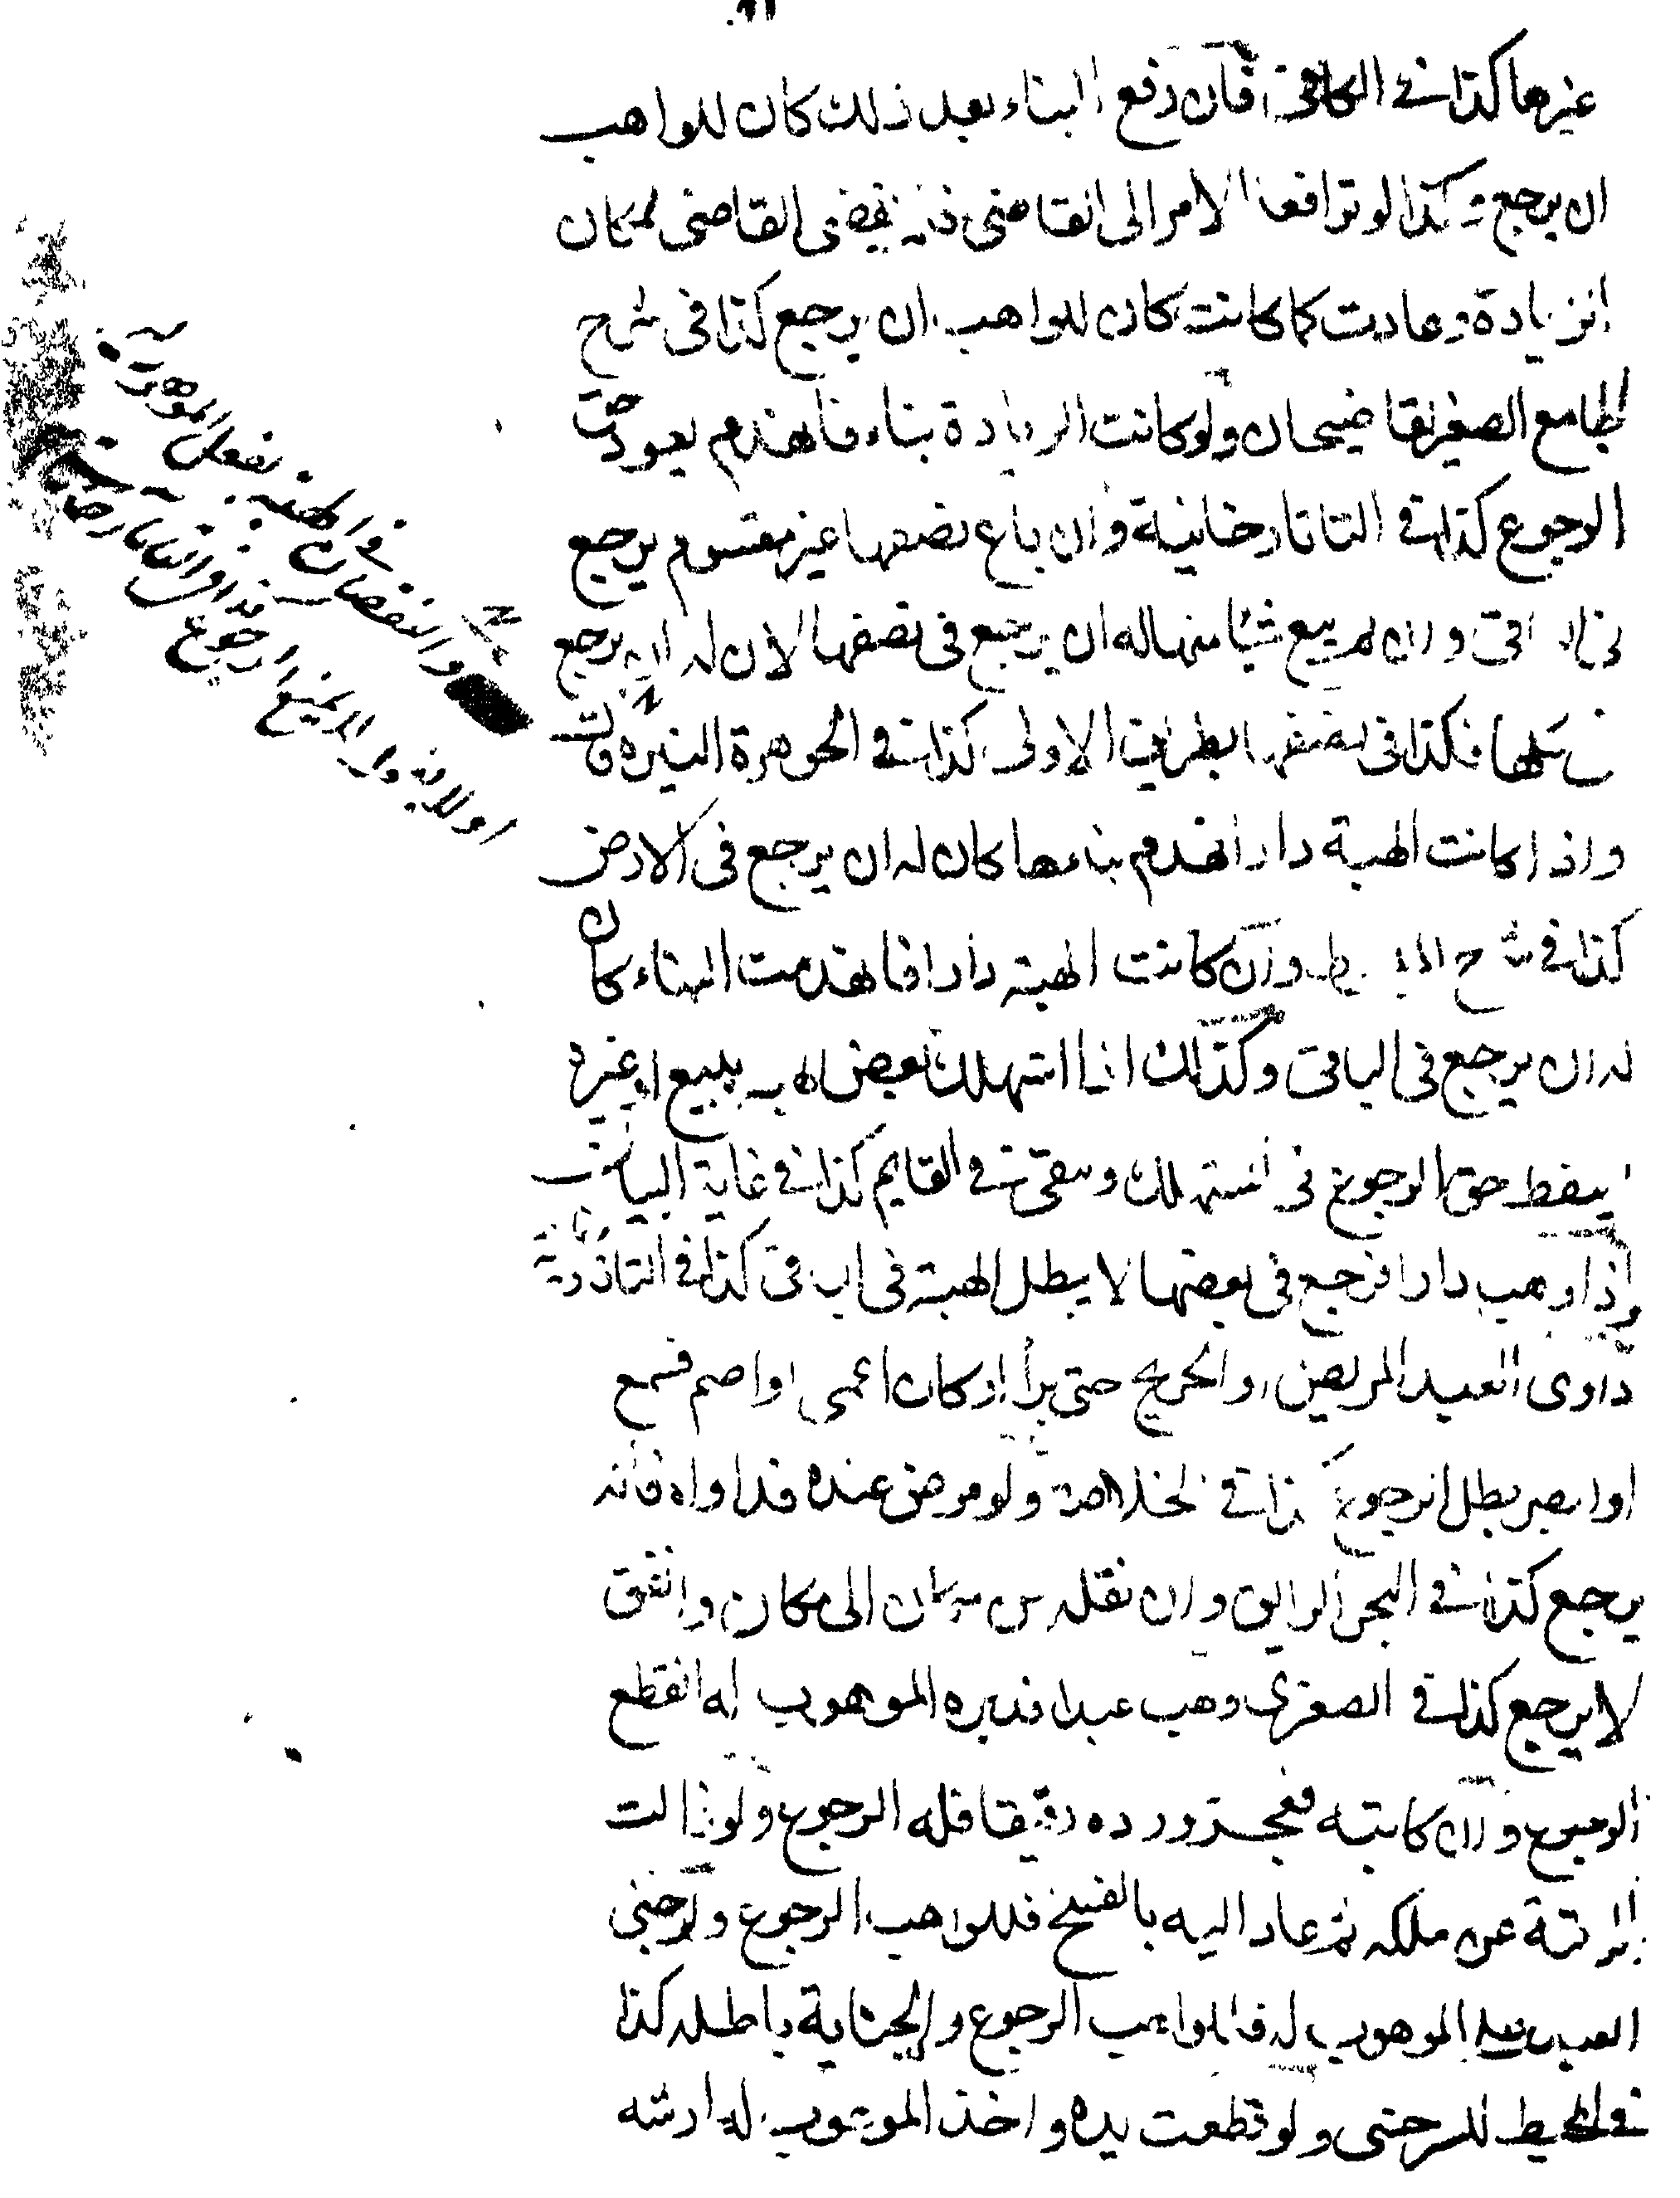 غيرها كذا في الكافي فان رفع البناء بعد ذلك كان للواهب
ان يرجع وكذا لو ترافعا الامر الى القاضي فلم يقضى القاضي لمكان
الزيادة وعادت كما كانت كان للواهب ان يرجع كذا في شرح
الجامع الصغير لقاضيخان ولو كانت الزيادة بناء فانهدم يعود حق
الرجوع كذا في التاتارخانية وان باع نصفها غير مقسوم يرجع
في الباقي وان لم يبع شيئا منها له ان يرجع في نصفها لان له ان يرجع
في كلها فكذا في نصفها بطريق الاولى كذا في الجوهرة النيرة
واذا كانت الهبة دار انهدم بناءها كان له ان يرجع في الارض
كذا في شرح وان كانت الهبة دارا فانهدمت البناء كان
له ان يرجع في الباقي وكذلك اذا استهلك بعض الهبة ببيع او غيره
يسقط حق الرجوع في المستهلك وبقى في القايم كذا في غاية البيان
واذا وهب دارا فرجع في بعضها لا يبطل الهبة في الباقي كذا في
داوى العبد المريض او الجريح حتى برأ او كان اعمى او اصم فسمع
او ابصر بطل الرجوع كذا في الخلاصة ولو مرض عنده فداواه فانه
يرجع كذا في البحر الرايق وان نقله من مكان الى مكان وانفق
لا يرجع كذا في الصغرى وهب عبدا فدبره الموهوب له انقطع
الرجوع وان كاتبه فعجز ورده رقيقا فله الرجوع ولو زالت
الرقبة عن ملكه ثم عاد اليه بالفسخ فللواهب الرجوع ولو جنى
العبد على الموهوب له فللواهب الرجوع والجناية باطله كذا
في المحيط للسرخسى ولو قطعت يده واخذ الموهوب له ارشه
والنقصان في الهبة بفعل الموهوب
اولا وان لا يمنع الرجوع كذا في التاتارخانية